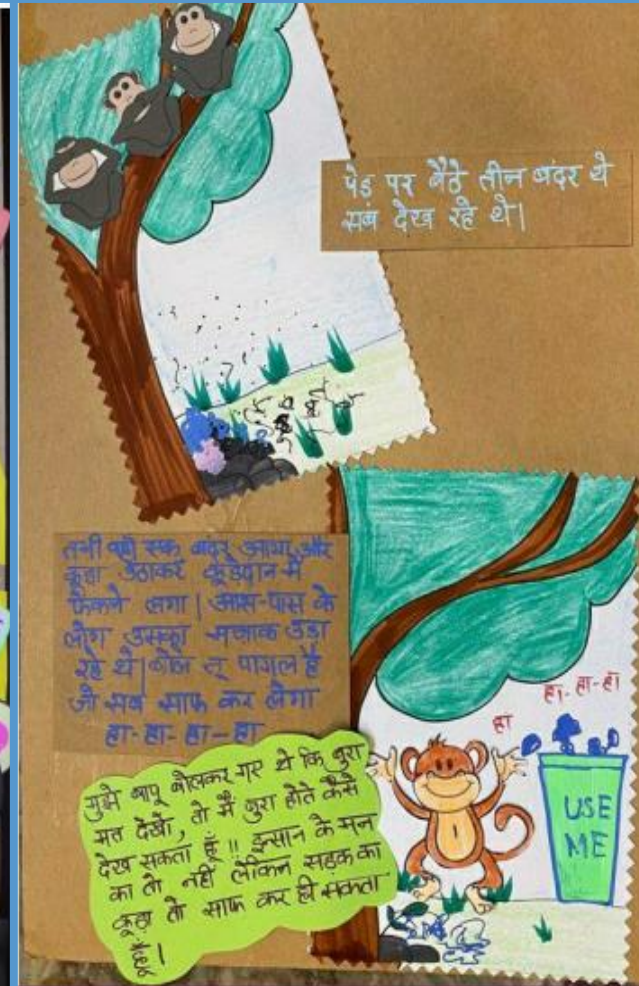 पेड़ पर बैठे तीन बंदर थे
सब देख रहे थे|
तभी वहाँ एक बंदर आया और
कूड़ा उठाकर कूड़ेदान में
फेंकने लगा| आस-पास के
लोग उसका मजाक उड़ा
रहे थे| बोले तू पागल है
जो सब साफ कर लेगा
हा-हा-हा-हा
हा हा-हा-हा
USE
ME
मुझे बापू बोलकर गए थे कि बुरा
मत देखो, तो मैं बुरा होते कैसे
देख सकता हूँ !! इन्सान के मन
का तो नहीं लेकिन सड़क का
कूड़ा तो साफ कर ही सकता
हूँ|